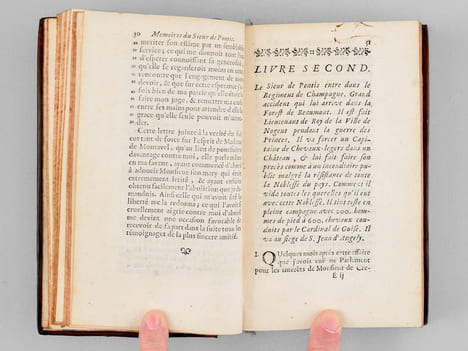 50 Memoires du Sieur de Pontis.
meriter son estime par un semblable
service; ce qui me donnoit sujet
d'esperer connoissant sa generosité,
qu'elle se regarderoit moins en cette
rencontre que l'engagement de mon
devoir; & qu'elle ne pourroit pas
faire moins que d'
estre mon juge, & remettre ma cause
entre ses mains pour attendre d'elle la
grace qu'elle seule pouvoit m'accorder.
Cette lettre jointe à la verité du fait
eut tant de force sur l'esprit de Madame
de Montavel, que loin de penser
davantage contre moi, elle parla en
ma faveur, ayant connu que j'avois
à adoucir Monsieur son mary qui étoit
extremement irrité, & ayant enfin
obtenu facilement l'abolition que je
demandois. Ainsi celle qui m'avoit été
liberté me la redonna; & ce qui l'avoit
cruellement aigrie contre moi d'abord,
me devint une occasion favorable de
recevoir de sa part dans la suite tous les
témoignages de la plus sincere amitié.
51
LIVRE SECOND.
Le Sieur de Pontis entre dans le
Regiment de Champagne. Grand
accident qui lui arrive dans la
Forest de Beaumont. Il est fait
Lieutenant de Roy de la Ville de
Nogent pendant la guerre des
Princes. Il va forcer un Capi-
taine de Chevaux-legers dans un
Château, & lui fait faire son
procès comme à un incendiaire pu-
blic malgré la resistance de toute
la Noblesse du pays. Comme il
vide toutes les querelles qu'il eut
avec cette Noblesse. Il tint teste en
pleine campagne avec 200. hom-
mes de pied à 600. chevaux con-
duits par le Cardinal de Guise. Il
va au siege de S. Jean d'Angely.
I. Quelques mois après cette affaire
que j'avois eue au Parlement
pour les interêts de Monsieur de Cre-
E ij